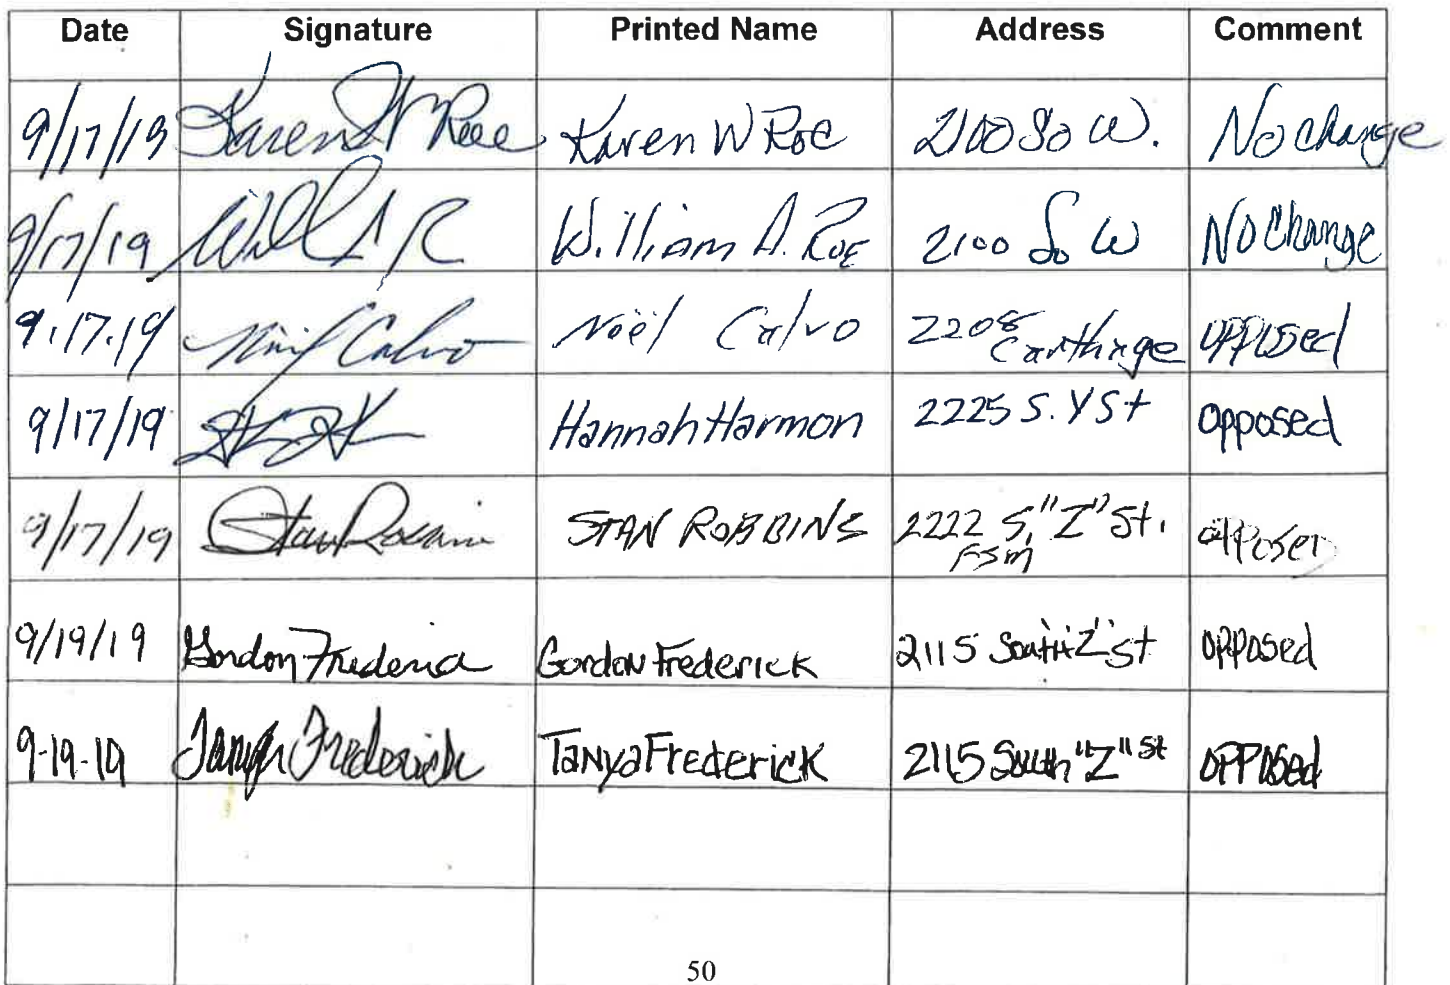 Date Signature Printed Name Address Comment
9/17/19 Karen W Roe Karen W Roe 2100 So W. No change
9/17/19 Will A R William A. Roe 2100 So W No Change
9.17.19 Noël Calvo Noël Calvo 2208 Carthage opposed
9/17/19 Hannah Harmon 2225 S. Y St opposed
9/17/19 Stan Robbins STAN ROBBINS 2222 S. "Z" St. FSM opposed
9/19/19 Gordon Frederick Gordon Frederick 2115 South "Z" St opposed
9-19-19 Tanya Frederick Tanya Frederick 2115 South "Z" St opposed
50